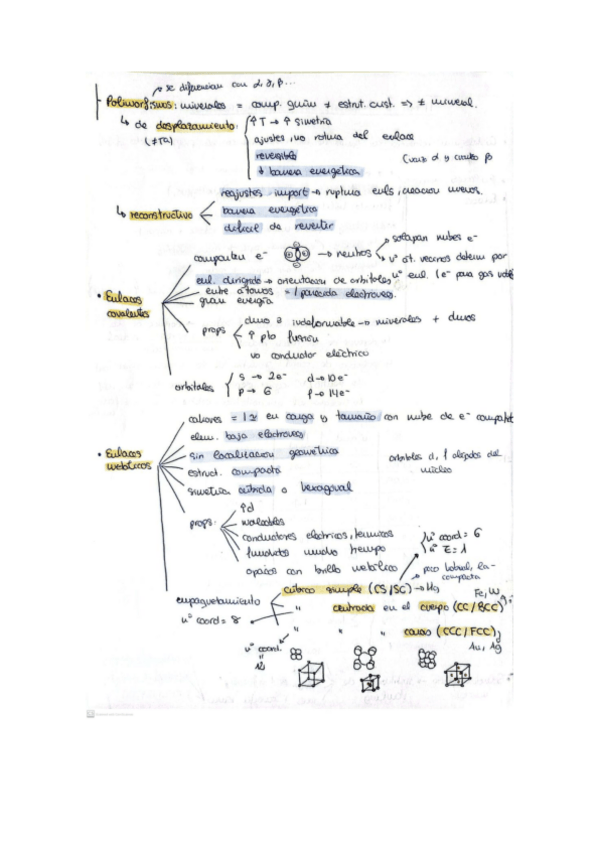 se diferencian con α, γ, β...
Polimorfismos: minerales = comp. quím ≠ estrut. crist. => ≠ mineral.
↳ de desplazamiento: ↑T → ↑ simetria
(≠Tª) ajustes, no rotura del enlace
reversible (cuarzo α y cuarzo β
↓ barrera energética
reajustes import → ruptura enls, creacion nuevos.
↳ reconstructivo barrera energética
dificil de revertir
comparten e⁻ → neutros → solapan nubes e⁻
nº át. vecinos determ por
enl. dirigido → orientacion de orbitales nº enl. (e⁻ para gas noble
• Enlaces covalentes entre átomos = / parecida electroneg.
gran energía
props duros e indeformable → minerales + duros
↑ pto fusion
no conductor eléctrico
orbitales s → 2e⁻ d → 10e⁻
p → 6 f → 14e⁻
cationes = / ≈ en carga y tamaño con nube de e⁻ compart
elem. baja electroneg
• Enlaces metálicos sin localizacion geometrica orbitales d, f alejados del núcleo
estruct. compacta
simetria cúbica o hexagonal
props: ↑d
maleables
conductores electricos, termicos
opacos con brillo metálico
nº coord = 6
nº E = 1
poco habitual, la - compacta
empaquetamiento cúbico simple (CS/SC) → Hg
nº coord = 8 " centrada en el cuerpo (CC/BCC) Fe, W
" " caras (CCC/FCC)
nº coord. Au, Ag
12